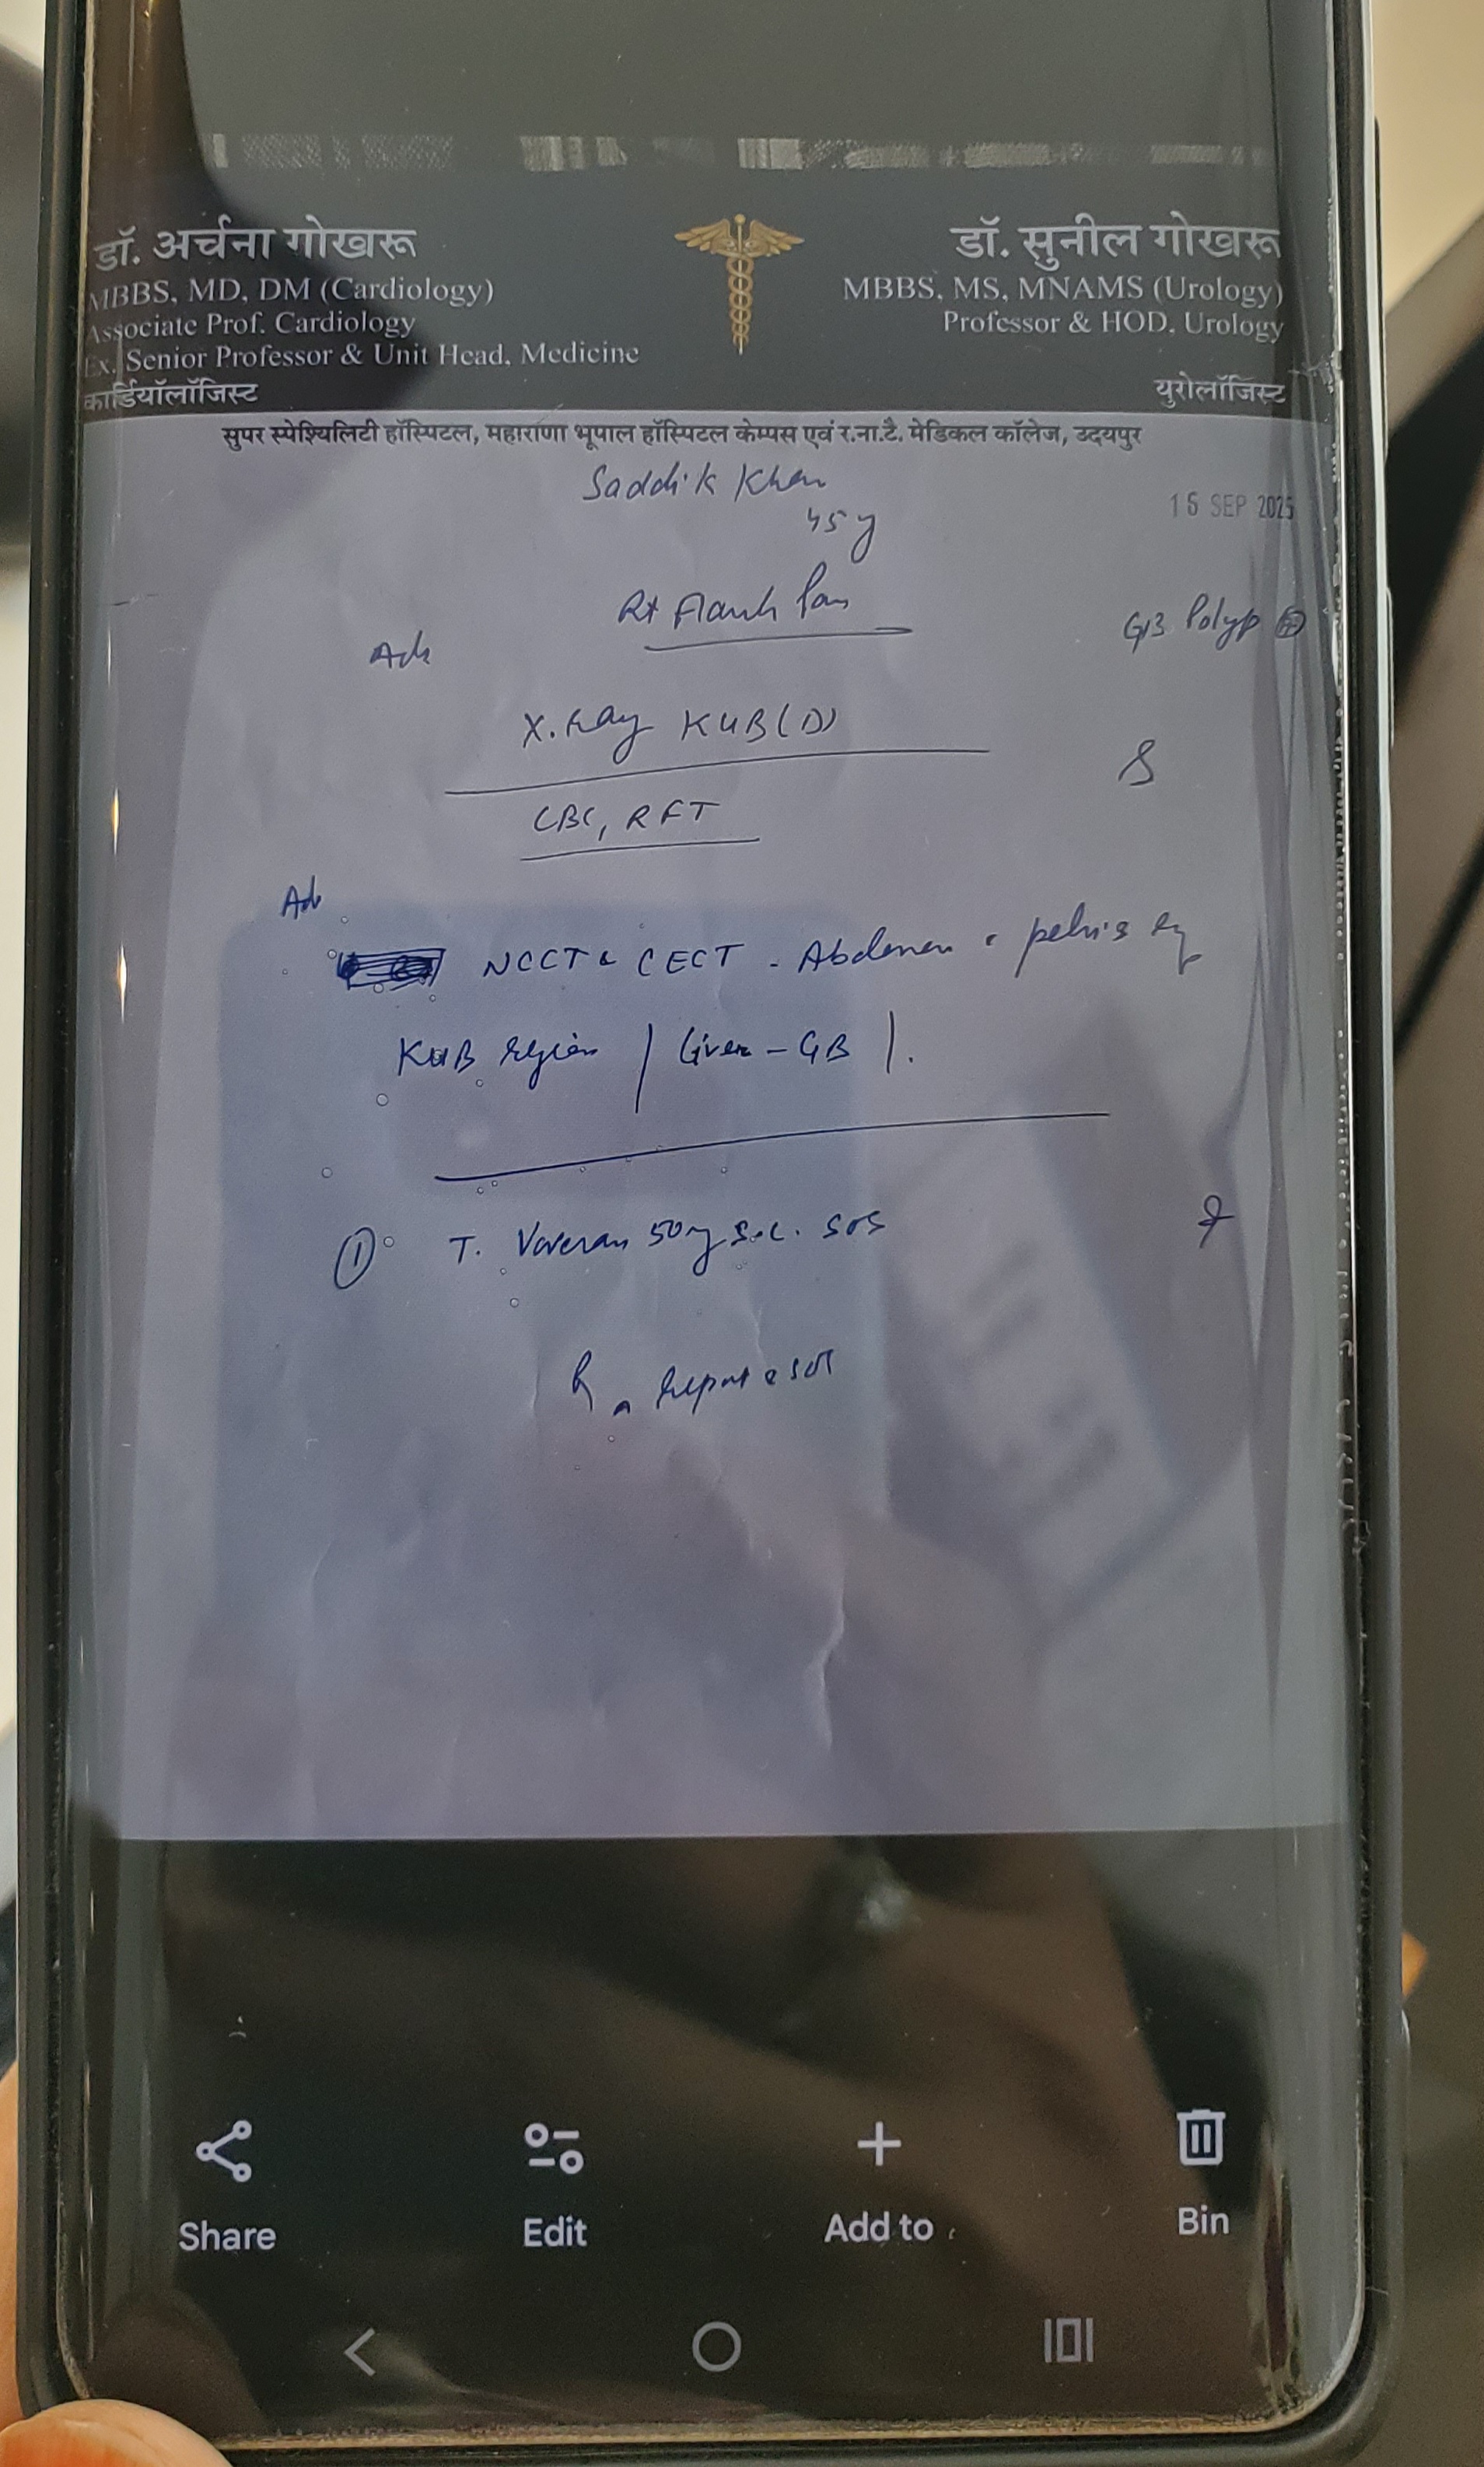 डॉ. अर्चना गोखरू
MBBS, MD, DM (Cardiology)
Associate Prof. Cardiology
Ex. Senior Professor & Unit Head, Medicine
कार्डियॉलॉजिस्ट
डॉ. सुनील गोखरू
MBBS, MS, MNAMS (Urology)
Professor & HOD, Urology
युरोलॉजिस्ट
सुपर स्पेश्यिलिटी हॉस्पिटल, महाराणा भूपाल हॉस्पिटल केम्पस एवं र.ना.टै. मेडिकल कॉलेज, उदयपुर
Saddik Khan
45 y
SEP 2025
Rt Flank Pain
GB Polyp
Adv
X.Ray KUB (D)
CBC, RFT
Adv
NCCT & CECT - Abdomen pelvis
KUB region / Liver - GB /.
① T. Voveran 50mg SOS
Report SOS
Share
Edit
Add to
Bin